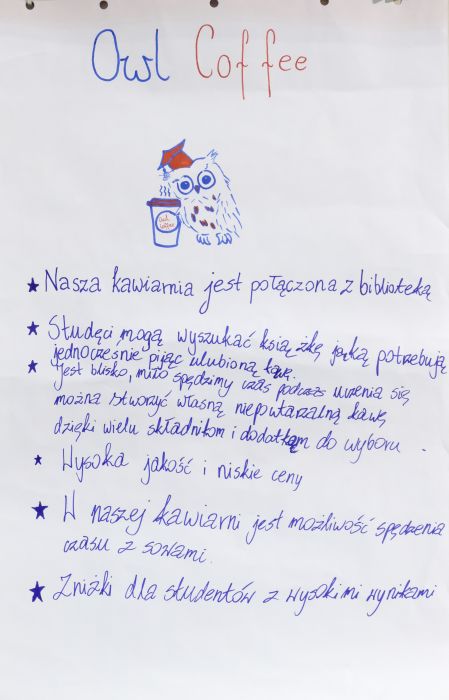 Owl Coffee
Owl
coffee
★ Nasza kawiarnia jest połączona z biblioteką
★ Studęci mogą wyszukać książkę jąką potrzebują
jednocześnie pijąc ulubioną kawę.
★ Jest blisko, miło spędzimy czas podczas uczenia się,
można stworzyć własną niepowtarzalną kawę
dzięki wielu składnikom i dodatkąm do wyboru.
★ Wysoka jakość i niskie ceny
★ W naszej kawiarni jest możliwość spędzenia
czasu z sowami.
★ Zniżki dla studentów z wysokimi wynikami